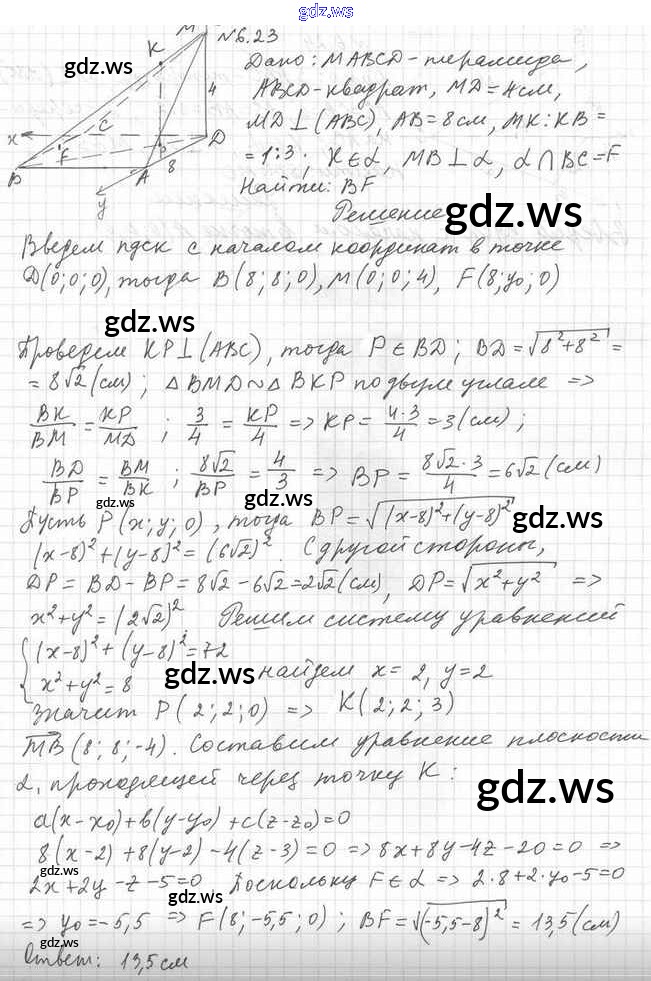 gdz.ws
№6.23
gdz.ws
Дано: MABCD - пирамида,
ABCD - квадрат, MD = 4 см,
MD ⊥ (ABC), AB = 8 см, MK : KB =
= 1:3; K ∈ α, MB ⊥ α, α ∩ BC = F
Найти: BF
M K 4 x C D F P B A 8 y
Решение
gdz.ws
Введем пдск с началом координат в точке
D(0; 0; 0), тогда B(8; 8; 0), M(0; 0; 4), F(8; y₀; 0)
gdz.ws
Проведем KP ⊥ (ABC), тогда P ∈ BD; BD = √(8² + 8²) =
= 8√2 (см); △BMD ~ △BKP по двум углам =>
BK/BM = KP/MD; 3/4 = KP/4 => KP = 4·3/4 = 3 (см);
BD/BP = BM/BK; 8√2/BP = 4/3 => BP = 8√2·3/4 = 6√2 (см)
gdz.ws gdz.ws
Пусть P(x; y; 0), тогда BP = √((x-8)² + (y-8)²)
gdz.ws
(x-8)² + (y-8)² = (6√2)². С другой стороны,
DP = BD - BP = 8√2 - 6√2 = 2√2 (см), DP = √(x² + y²) =>
x² + y² = (2√2)² Решим систему уравнений
{ (x-8)² + (y-8)² = 72
x² + y² = 8 найдем x = 2, y = 2
gdz.ws gdz.ws
Значит P(2; 2; 0) => K(2; 2; 3)
MB (8; 8; -4). Составим уравнение плоскости
α, проходящей через точку K:
gdz.ws
a(x-x₀) + b(y-y₀) + c(z-z₀) = 0
8(x-2) + 8(y-2) - 4(z-3) = 0 => 8x + 8y - 4z - 20 = 0 =>
2x + 2y - z - 5 = 0 Поскольку F ∈ α => 2·8 + 2·y₀ - 5 = 0
gdz.ws gdz.ws
=> y₀ = -5,5 => F(8; -5,5; 0); BF = √(-5,5-8)² = 13,5 (см)
gdz.ws
Ответ: 13,5 см
gdz.ws